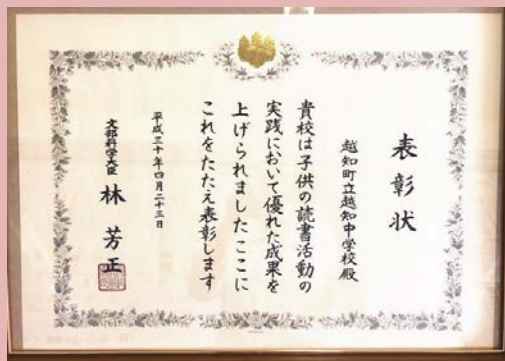 表彰状
越知町立越知中学校殿
貴校は子供の読書活動の
実践において優れた成果を
上げられましたここに
これをたたえ表彰します
平成三十年四月二十三日
文部科学大臣 林芳正